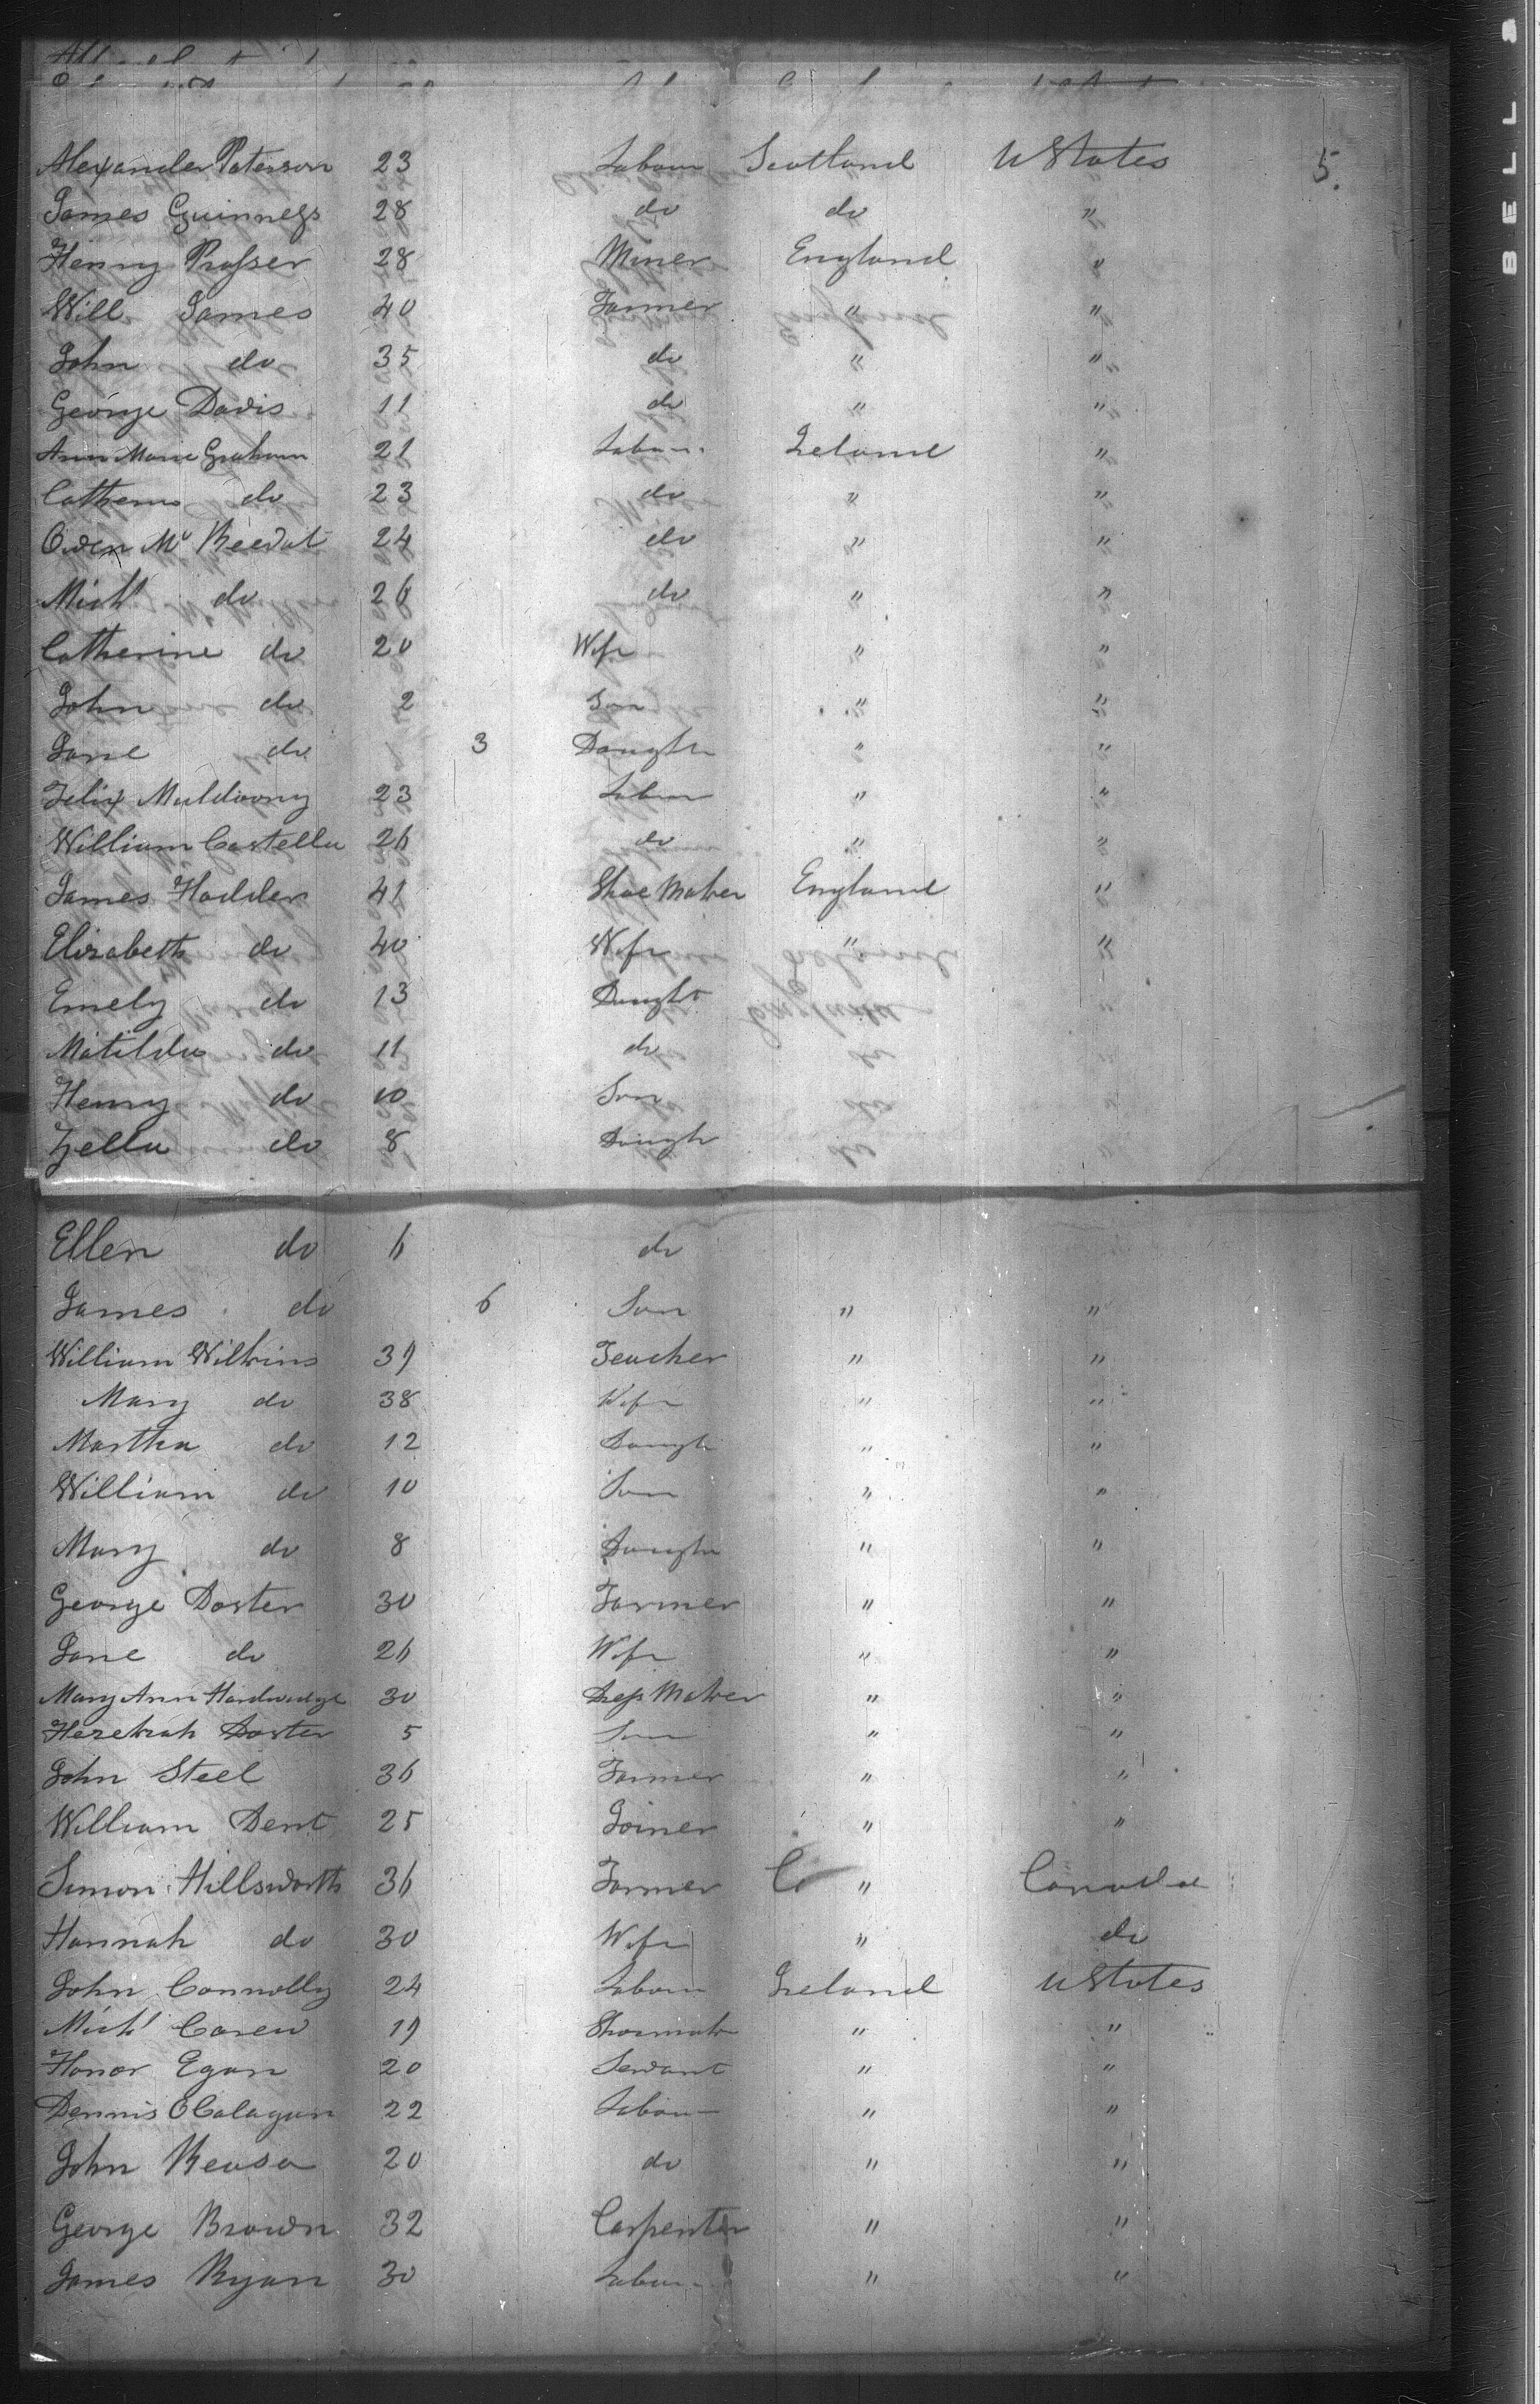 Alexander Paterson 23 Labour Scotland U States 5.
James Guinness 28 do do "
Henry Prosser 28 Miner England "
Will James 40 Farmer " "
John do 35 do " "
George Davis 11 do " "
Ann Marie Graham 21 Labour Ireland "
Catherine do 23 do " "
Owen Mc 24 do " "
Michl do 26 do " "
Catherine do 20 Wife " "
John do 2 Son " "
Jane do 3 Daughtr " "
Felix Muldoony 23 Labour " "
William Costello 26 do " "
James Hodder 41 Shoe Maker England "
Elizabeth do 40 Wife " "
Emely do 13 Daught
Matilda do 11 do
Henry do 10 Son
Zella do 8 Daugh
Ellen do 6 do
James do 6 Son " "
William Wilkins 39 Teacher " "
Mary do 38 Wife " "
Martha do 12 Daught " "
William do 10 Son " "
Mary do 8 Daughtr " "
George Doster 30 Farmer " "
Jane do 26 Wife " "
Mary Ann 30 Dress Maker " "
Hezekiah Doster 5 Son " "
John Steel 36 Farmer " "
William Dent 25 Joiner " "
Simon Hillsworth 36 Farmer " Canada
Hannah do 30 Wife " do
John Connolly 24 Labour Ireland U States
Michl Carew 19 Shoemakr " "
Honor Egan 20 Servant " "
Dennis OCalagan 22 Labour " "
John 20 do " "
George Brown 32 Carpenter " "
James Ryan 30 Labour " "
BELL &